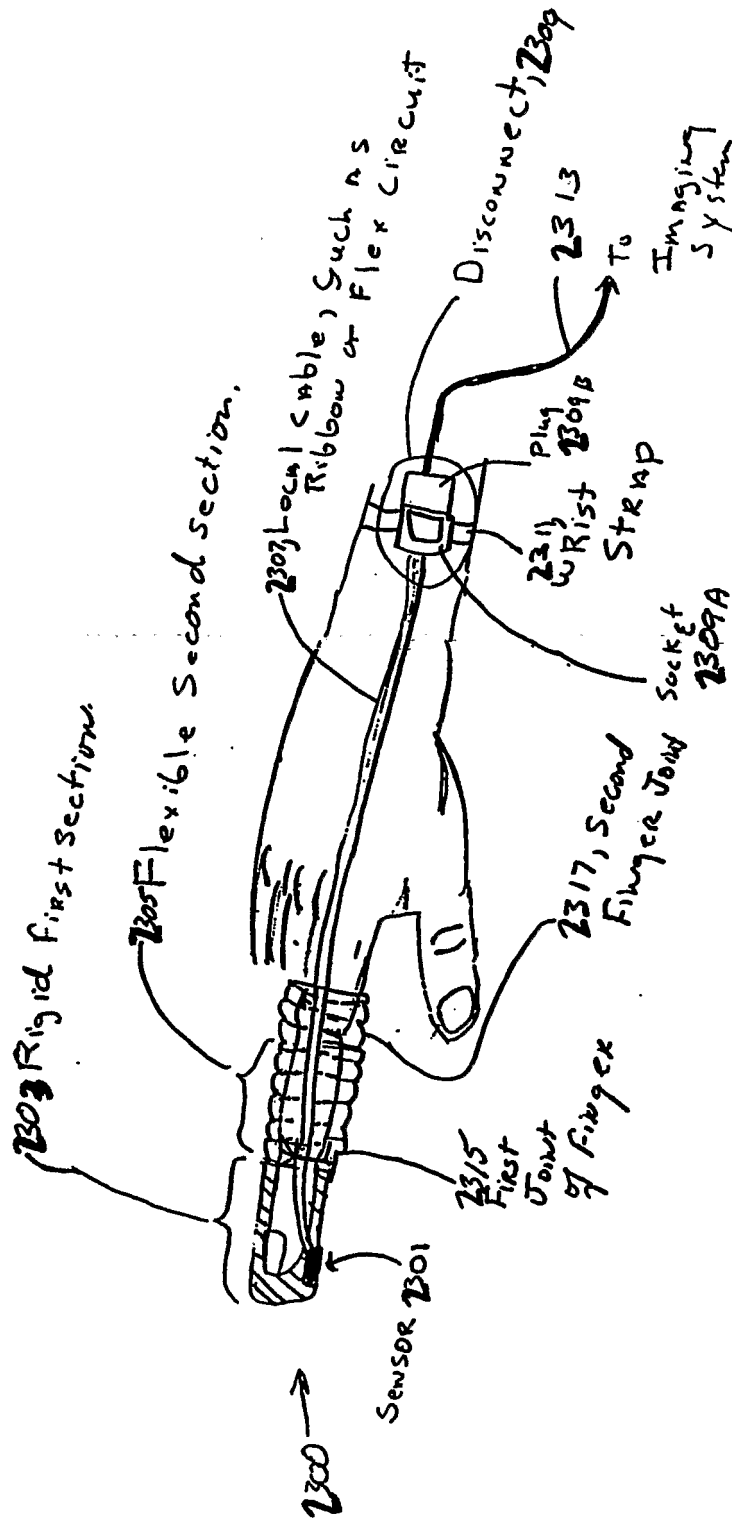 2303 Rigid First Section.
2305 Flexible Second Section.
2307, Local Cable, Such as
Ribbon or Flex Circuit
Disconnect, 2309
2313
To
Imaging
System
Plug
2309B
2311
Wrist
Strap
Socket
2309A
2317, Second
Finger Joint
2315
First
Joint
of Finger
Sensor 2301
2300